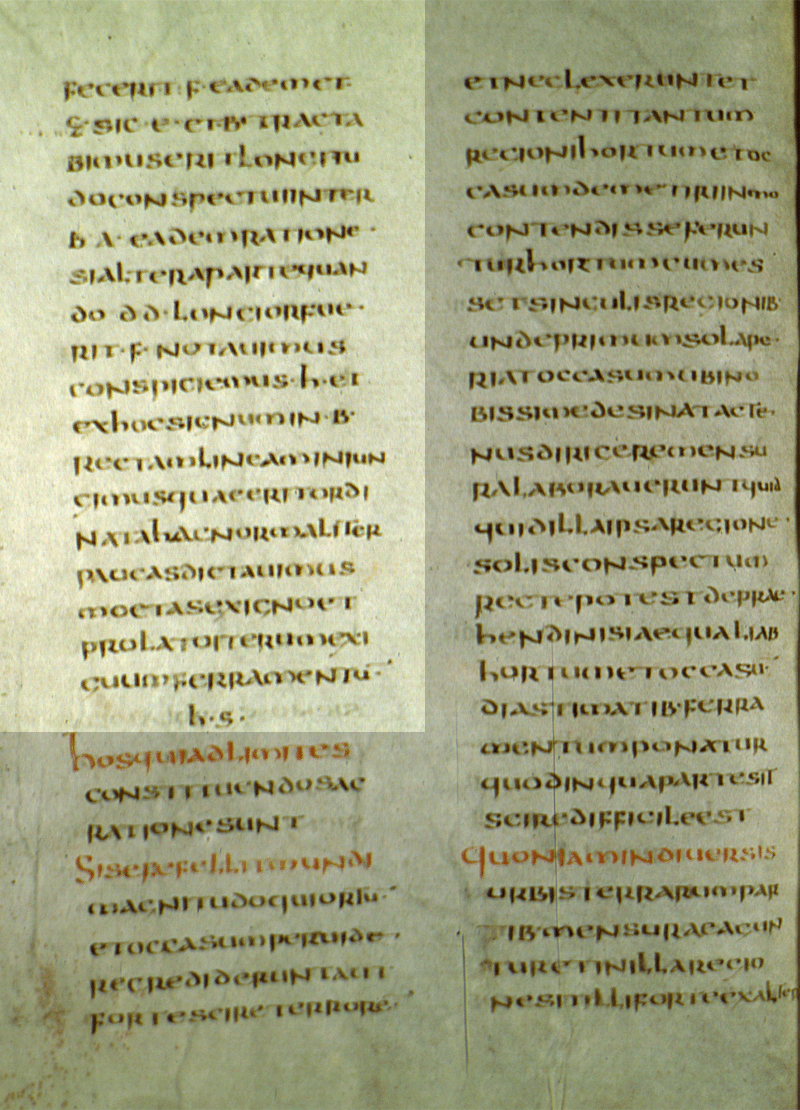 fecerit · f · eademet
sic · e · et · b · tracta
bimuseritlongitu
doconspectuiinter
h · a · eademratione ·
sialterapartequan
do · d d · longiorfue ·
rit · f · notauimus
conspiciemus · h · et
exhocsignumin · b ·
rectamlineaminiun
gimusquaeeritordi
natahacnormaliter
paucasdictauimus
moetasexignoet
prolatofferumexi
guumferramentu ·
h · s ·
hosquiadlimites
constituendosac
rationesunt
sisepefellitmundi
magnitudoquiortu ·
etoccasumperuide ·
recrediderunt aut
fortescire terrore ·
etneglexerunt et
contenti tantum
regionihortumetoc
casumdemetiriinmo
contendisseferun
set singulisregionib
undeprimumsolape ·
riatoccasumubino
bissimedesinatacte ·
nusdirigeremensu
ralaborauerunt quid
quidillaipsaregione ·
solisconspectum
rectepotestdeprae ·
hendinisiaequaliab
hortumetoccasu ·
diastimatib · ferra
mentumponatur
quodinquapartesit
sciredifficileest
quoniamindiuersis
orbisterrarumpar
tib mensuraeagun
turetinillaregio
nesitilliforteexaliter